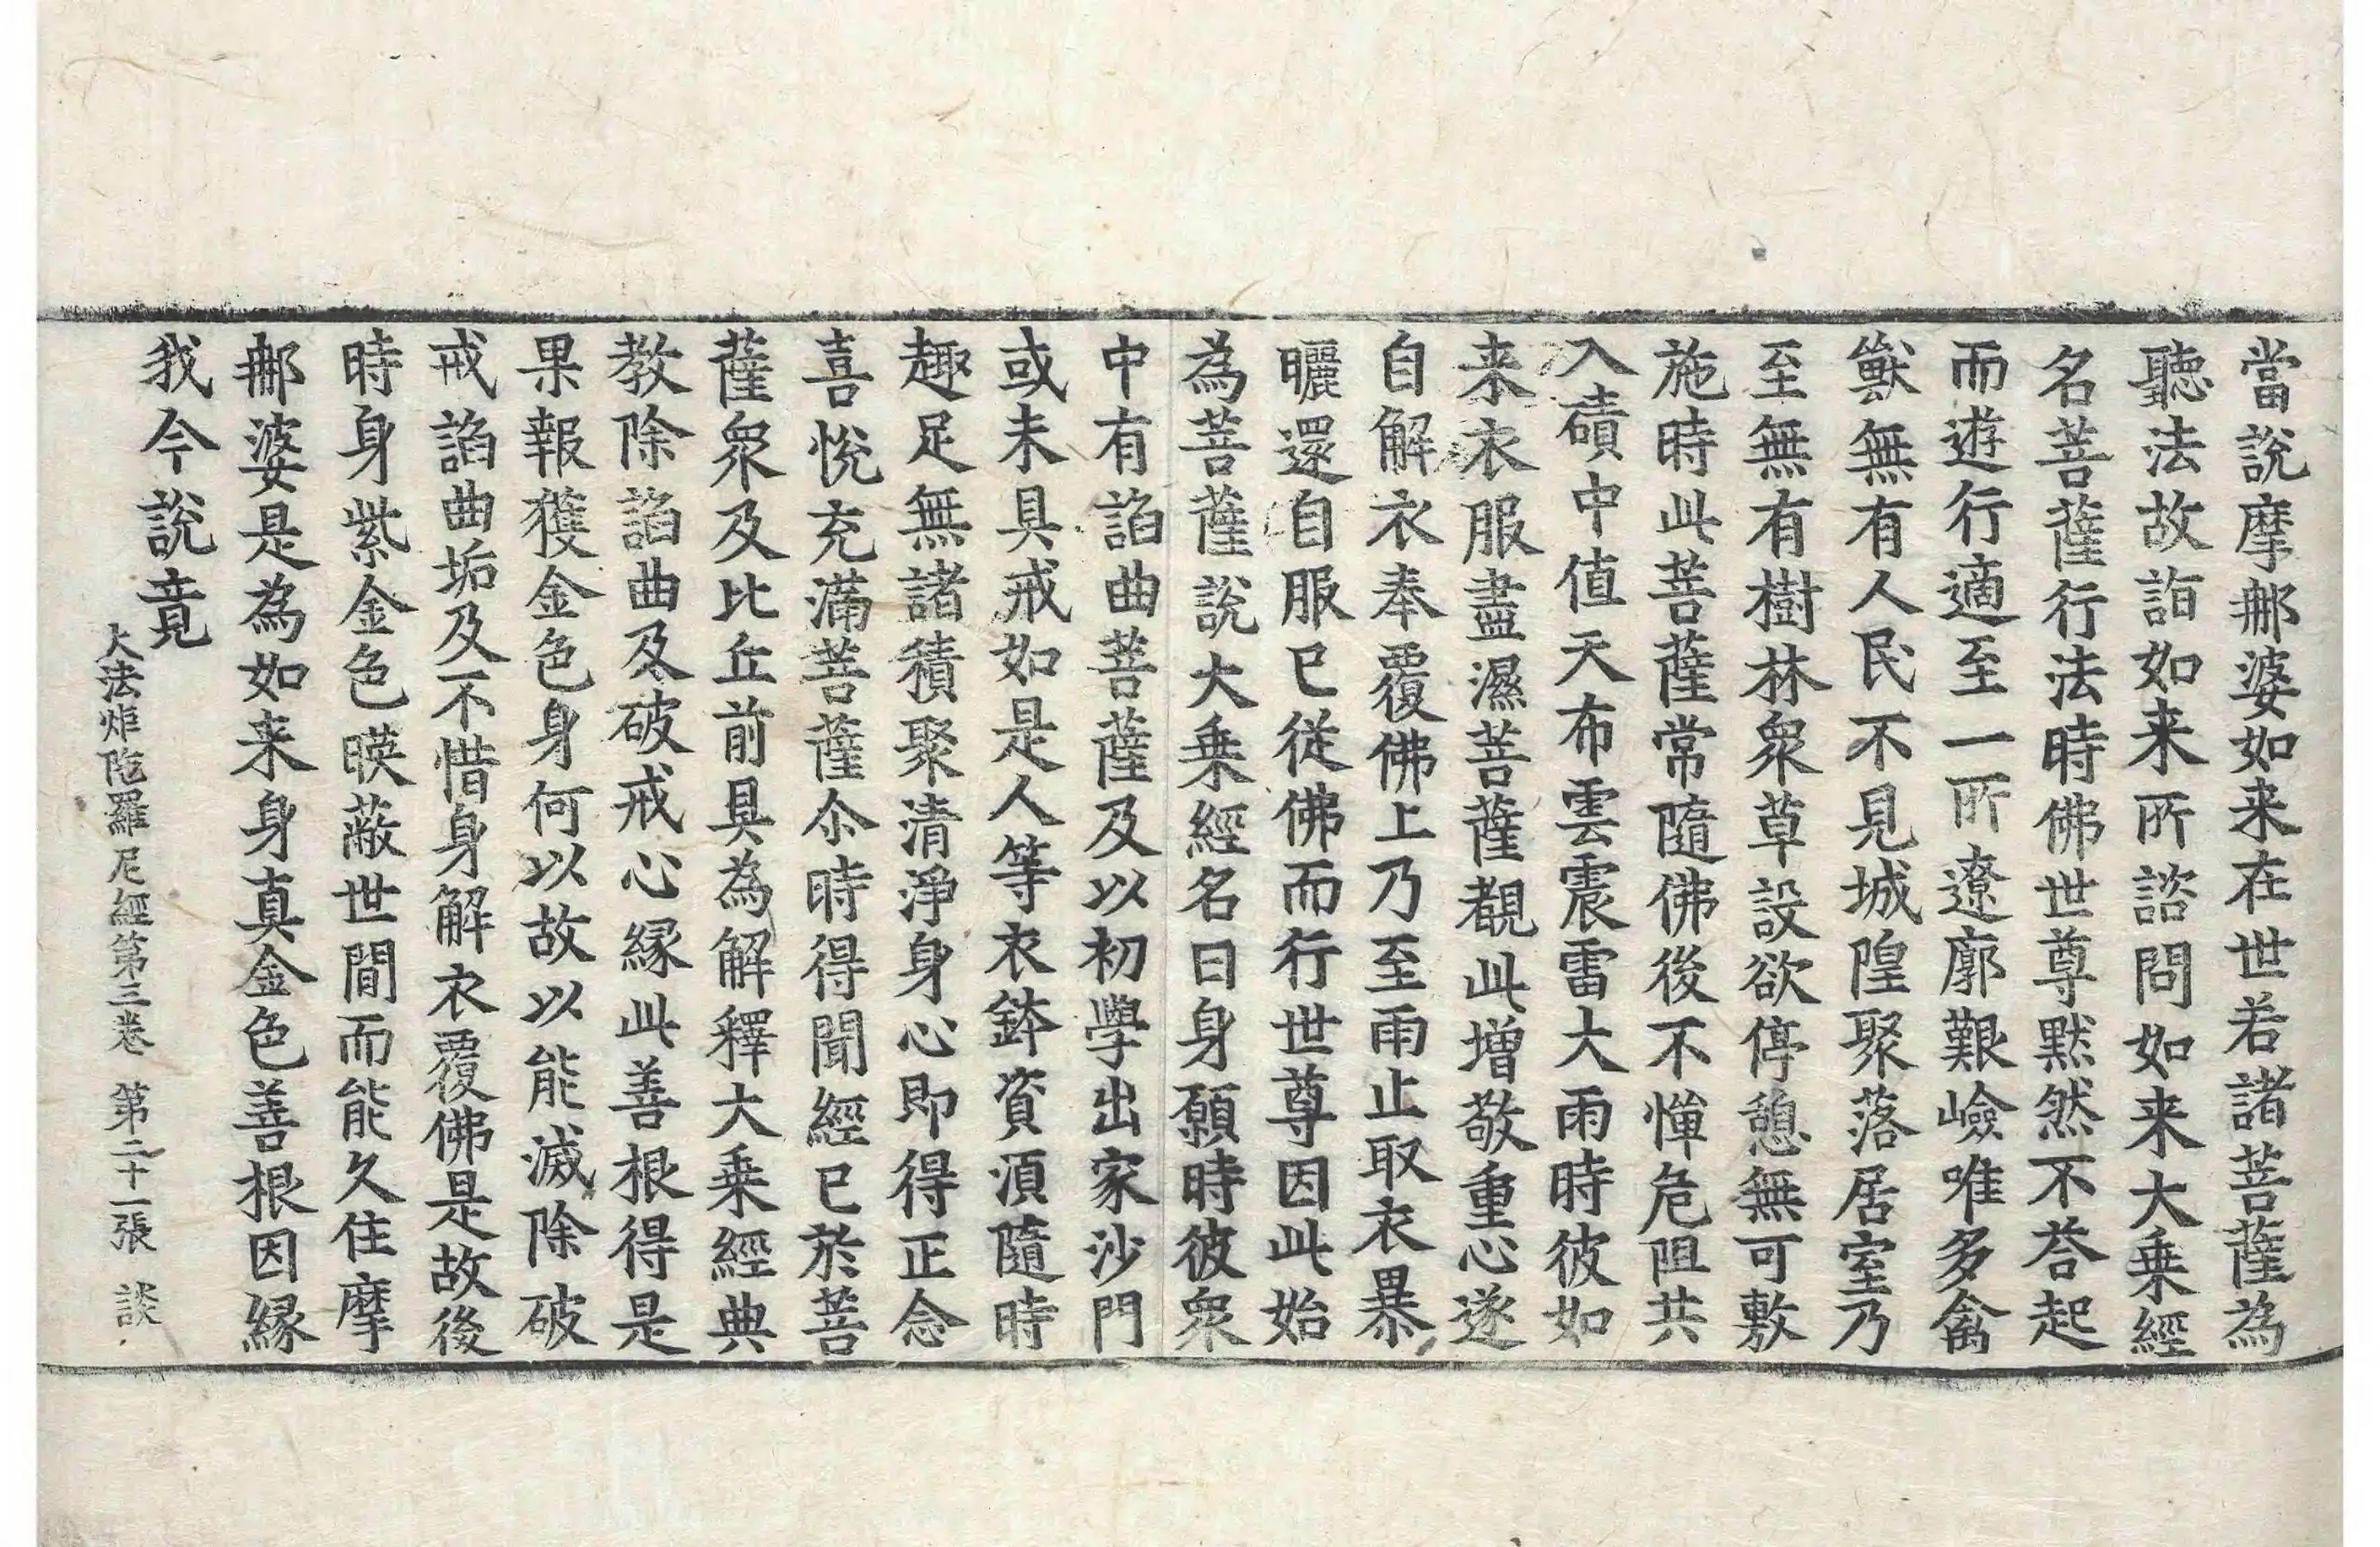 當說摩郍婆如来在世若諸菩薩為
聽法故詣如来所諮問如来大乗經
名菩薩行法時佛世尊默然不荅起
而遊行適至一所遼廓艱嶮唯多禽
獸無有人民不見城隍聚落居室乃
至無有樹林衆草設欲停憩無可敷
施時此菩薩常隨佛後不憚危阻共
入磧中值天布雲震雷大雨時彼如
来衣服盡濕菩薩覩此增敬重心遂
自解衣奉覆佛上乃至雨止取衣暴
曬還自服已從佛而行世尊因此始
為菩薩說大乗經名曰身願時彼衆
中有諂曲菩薩及以初學出家沙門
或未具戒如是人等衣鉢資湏隨時
趣足無諸積聚清淨身心即得正念
喜悅充滿菩薩尒時得聞經已於菩
薩衆及比丘前具為解釋大乗經典
教除諂曲及破戒心縁此善根得是
果報獲金色身何以故以能滅除破
戒諂曲垢及不惜身解衣覆佛是故後
時身紫金色暎蔽世間而能久住摩
郍婆是為如来身真金色善根因縁
我今說竟
大法炬陁羅尼經第三卷 第二十一張 談